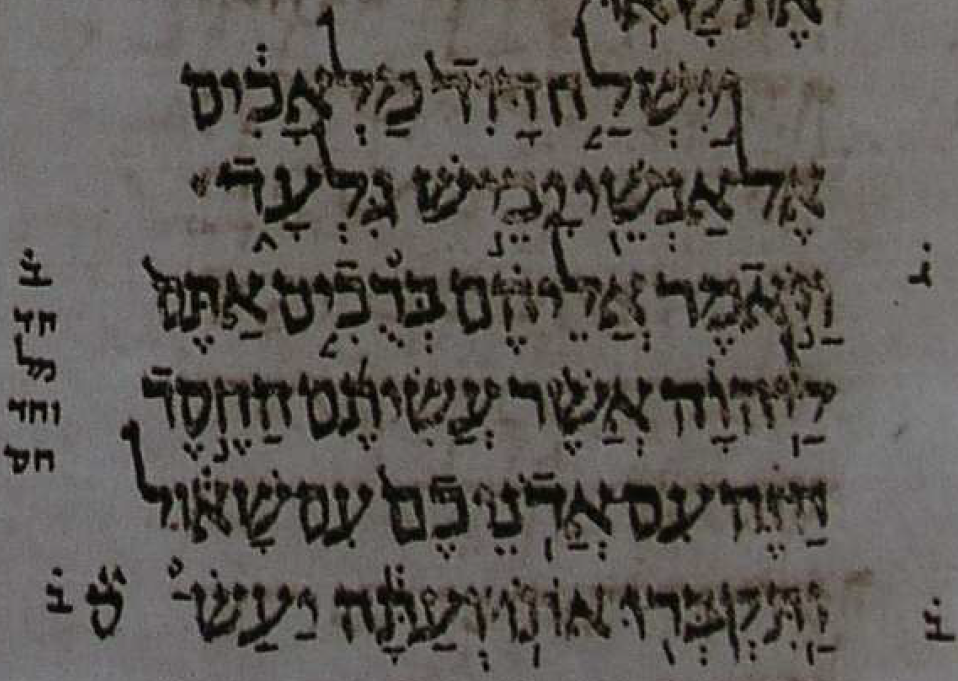 וַיִּשְׁלַח דָּוִד מַלְאָכִים
אֶל אַנְשֵׁי יָבֵישׁ גִּלְעָד
וַיֹּאמֶר אֲלֵיהֶם בְּרֻכִים אַתֶּם
לַיהוָה אֲשֶׁר עֲשִׂיתֶם הַחֶסֶד
הַזֶּה עִם אֲדֹנֵיכֶם עִם שָׁאוּל
וַתִּקְבְּרוּ אוֹתוֹ וְעַתָּה יַעַשׂ
ב
חד
מל
וחד
חס
ב